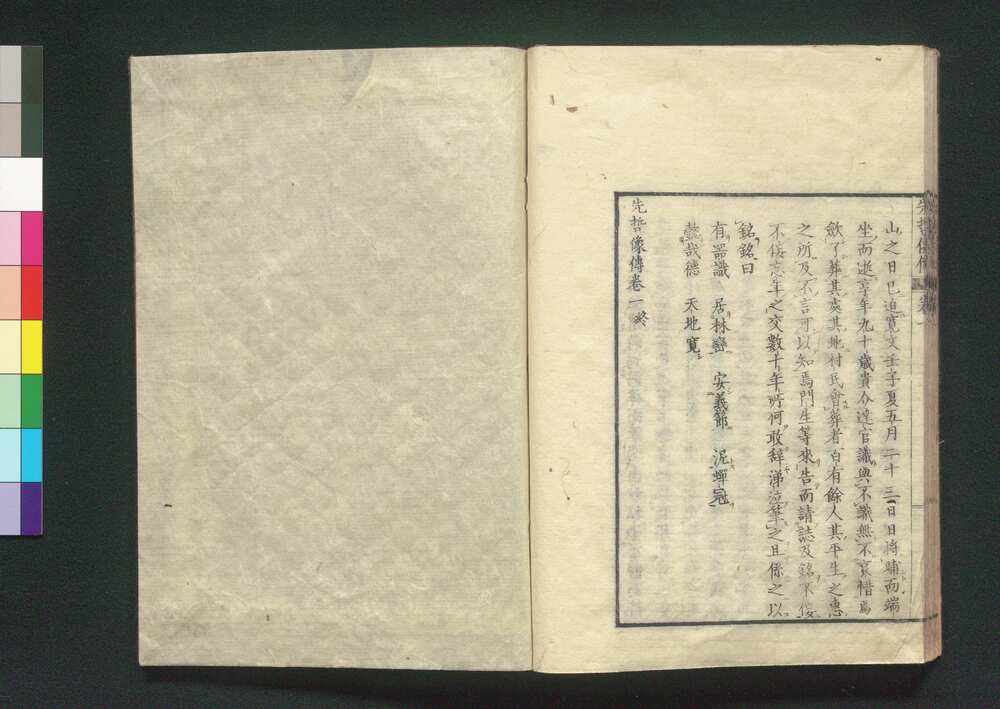 山之日已迫寛文壬子夏五月二十三日日將晡而端
坐而逝享年九十歳貴介達官識與不識無不哀惜焉
斂了葬其虞其地村民會葬者百有餘人其平生之惠
之所及不言可以知焉門生等來告而請誌及銘不佞
不佞忘年之交數十年所何敢辞涕泣筆之且係之以
銘銘曰
有器識　居林巒　安義節　泥蟬冠
懿哉德　天地寛
先哲像傳卷一終